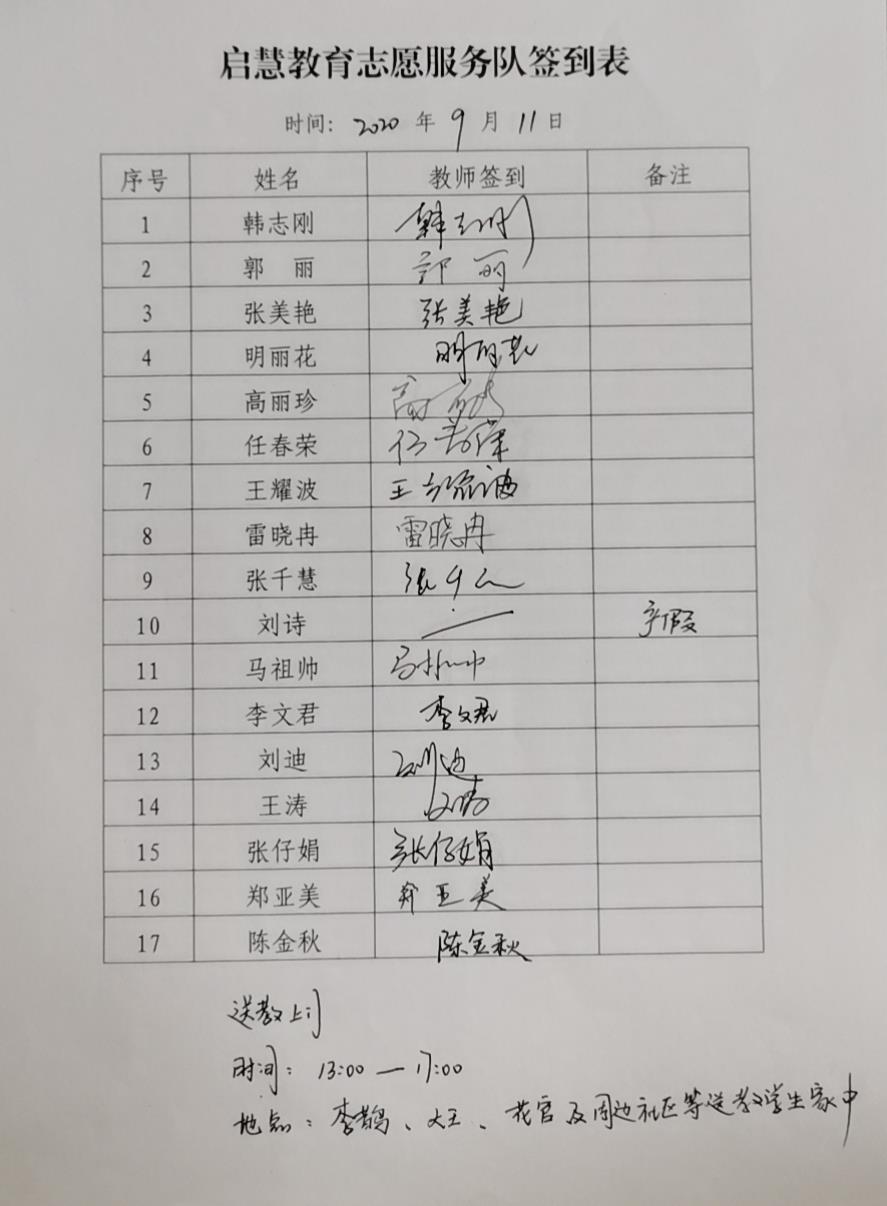 启慧教育志愿服务队签到表
时间: 2020 年 9 月 11 日
序号 姓名 教师签到 备注
1 韩志刚 韩志刚
2 郭 丽 郭丽
3 张美艳 张美艳
4 明丽花 明丽花
5 高丽珍 高丽珍
6 任春荣 任春荣
7 王耀波 王耀波
8 雷晓冉 雷晓冉
9 张千慧 张千
10 刘诗 产假
11 马祖帅 马祖帅
12 李文君 李文君
13 刘迪 刘迪
14 王涛
15 张仔娟 张仔娟
16 郑亚美 郑亚美
17 陈金秋 陈金秋
送教上门
时间: 13:00 — 17:00
地点: 李鹊、大王、花官及周边社区等送教学生家中